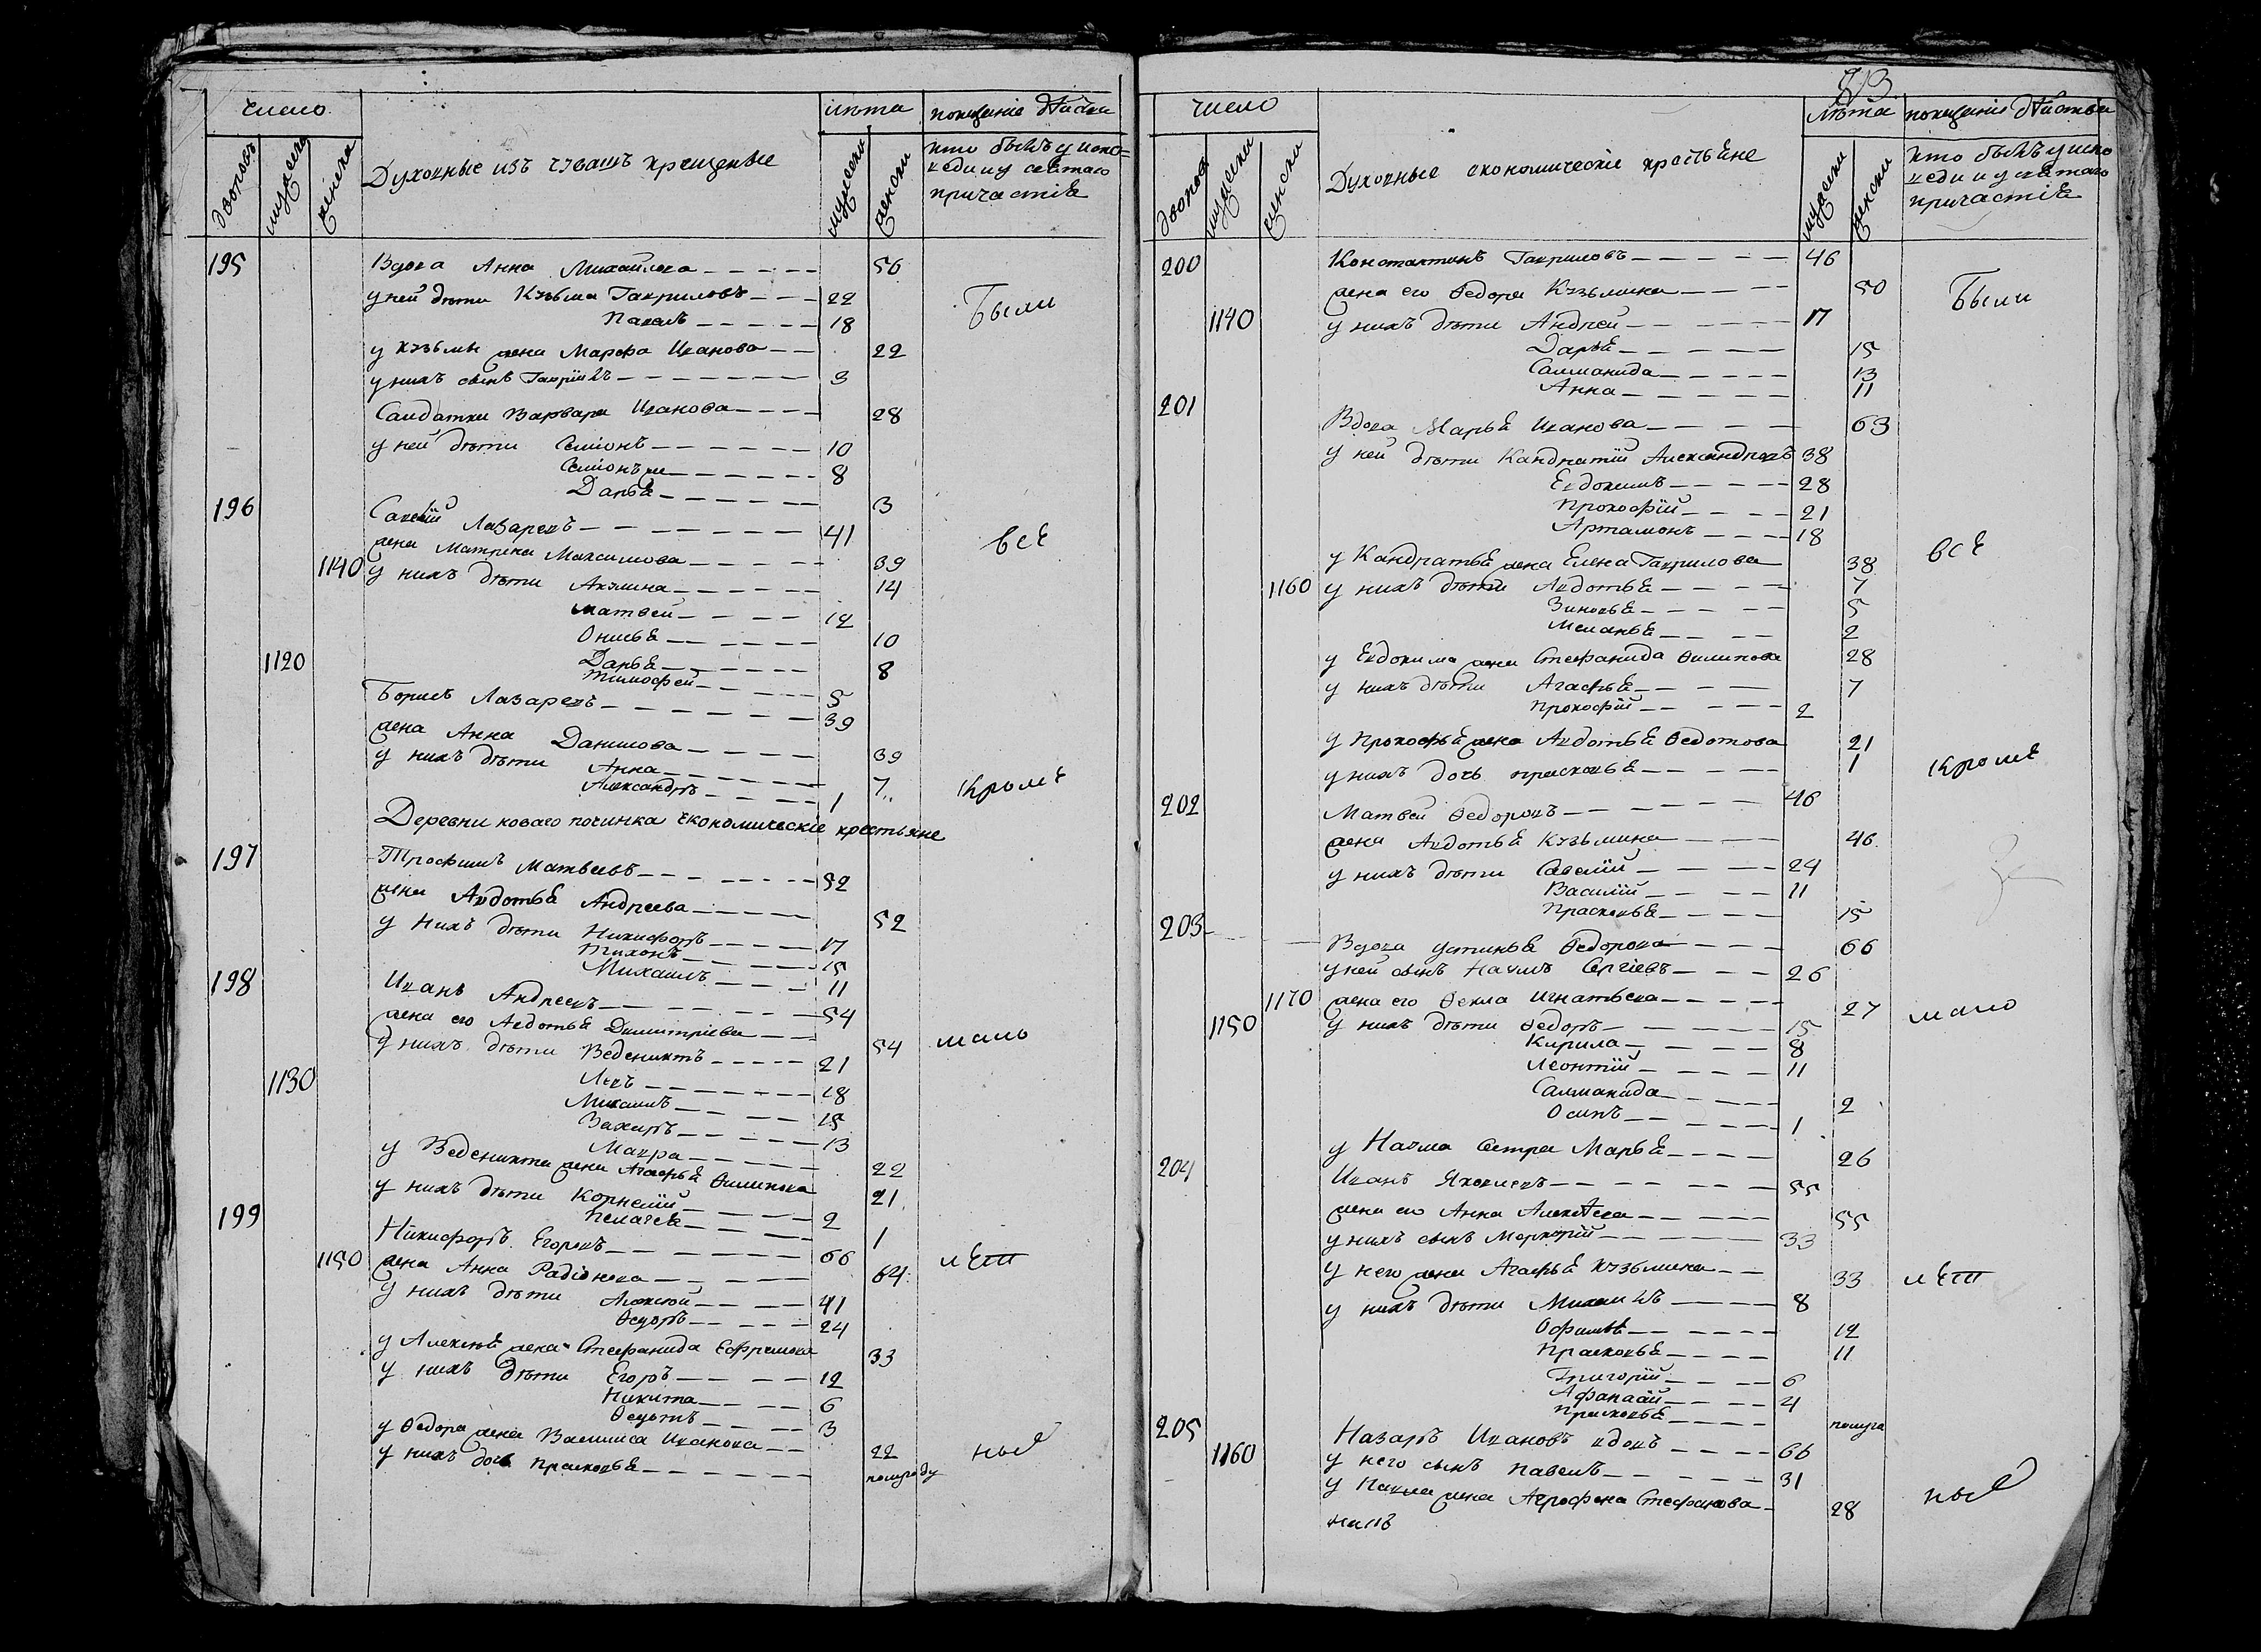 число
лѣта
показаніе дѣйстви
дворовъ
мужеска
женска
Духовные изъ чувашъ крещеные
мужески
женски
кто былъ у испо=
веди и у святаго
причастiя
195 Вдова Анна Михайлова 56
у ней дѣти Кузьма Гавриловъ 22
Павелъ 18
Были
у Кузьмы жена Марфа Иванова 22
у нихъ сынъ Гаврiилъ 3
Салдатки Варвары Иванова 28
у ней дѣти Семiонъ 10
Семiонъ же 8
Дарья 3
196 Савелiй Лазаревъ 41
всѣ
жена Матрена Максимова 39
1140 у нихъ дѣти Акулина 14
Матвей 12
Онисья 10
1120 Дарья 8
Тимофей 5
Борисъ Лазаревъ 39
жена Анна Данилова 39
у нихъ дѣти Анна 7
Александръ 1
Кромѣ
Деревни новаго починка экономическiе крестьяне
197 Трофимъ Матвеевъ 52
жена Авдотья Андреева 52
у нихъ дѣти Никифоръ 17
Тихонъ 15
Михаилъ 11
198 Иванъ Андреевъ 54
жена его Авдотья Димитрiева 54
мало
у нихъ дѣти Веденихтъ 21
1130 Левъ 18
Михаилъ 15
Захаръ 13
Мавра 22
у Веденихта жена Агафья Филипова 21
у нихъ дѣти Корнелiй 2
Пелагея 1
199 Никифоръ Егоровъ 66
лѣт
1150 жена Анна Радiонова 64
у нихъ дѣти Алексѣй 41
Федоръ 24
у Алексѣя жена Стефанида Ефремова 33
у нихъ дѣти Егоръ 12
Никита 6
Федотъ 3
у Федора жена Василиса Иванова 22
ныѣ
у нихъ дочь Прасковья полугоду
93
число
лѣта
показанiе дѣйстви
дворовъ
мужески
женски
Духовные економическiе крестьяне
мужески
женски
кто былъ у испо
веди и у святаго
причастiя
200 Константинъ Гавриловъ 46
жена его Федора Кузьмина 50
Были
1140 у нихъ дѣти Андрей 17
Дарья 15
Салманида 13
Анна 11
201 Вдова Марья Иванова 63
у ней дѣти Кандратiй Александровъ 38
Евдокимъ 28
Прокофiй 21
Артамонъ 18
всѣ
у Кандратья жена Елена Гаврилова 38
1160 у нихъ дѣти Авдотья 7
Зиновья 5
Меланья 2
у Евдокима жена Стефанида Филипова 28
у нихъ дѣти Агафья 7
Прокофiй 2
у Прокофья жена Авдотья Федотова 21
у нихъ дочь прасковья 1
Кромѣ
202 Матвей Федоровъ 46
жена Авдотья Кузьмина 46
у нихъ дѣти Савелiй 24
Василiй 11
Прасковья 15
203 Вдова Устинья Федорова 66
у ней сынъ Наумъ Сергiевъ 26
1170 жена его Фекла Игнатьева 27
мало
1150 у нихъ дѣти Федоръ 15
Кирила 8
Леонтiй 11
Салманида 2
Осипъ 1
у Наума сестра Марья 26
204 Иванъ Яковлевъ 55
жена его Анна Алексѣева 55
у нихъ сынъ Меркурiй 33
у него жена Агафья Кузьмина 33
лѣт
у нихъ дѣти Михаилъ 8
Офимья 12
Прасковья 11
Григорiй 6
Афанасiй 4
прасковья полуго
205 Назаръ Ивановъ вдовъ 66
1160 у него сынъ Павелъ 31
у Павла жена Агрофена Стефанова 28
ныѣ